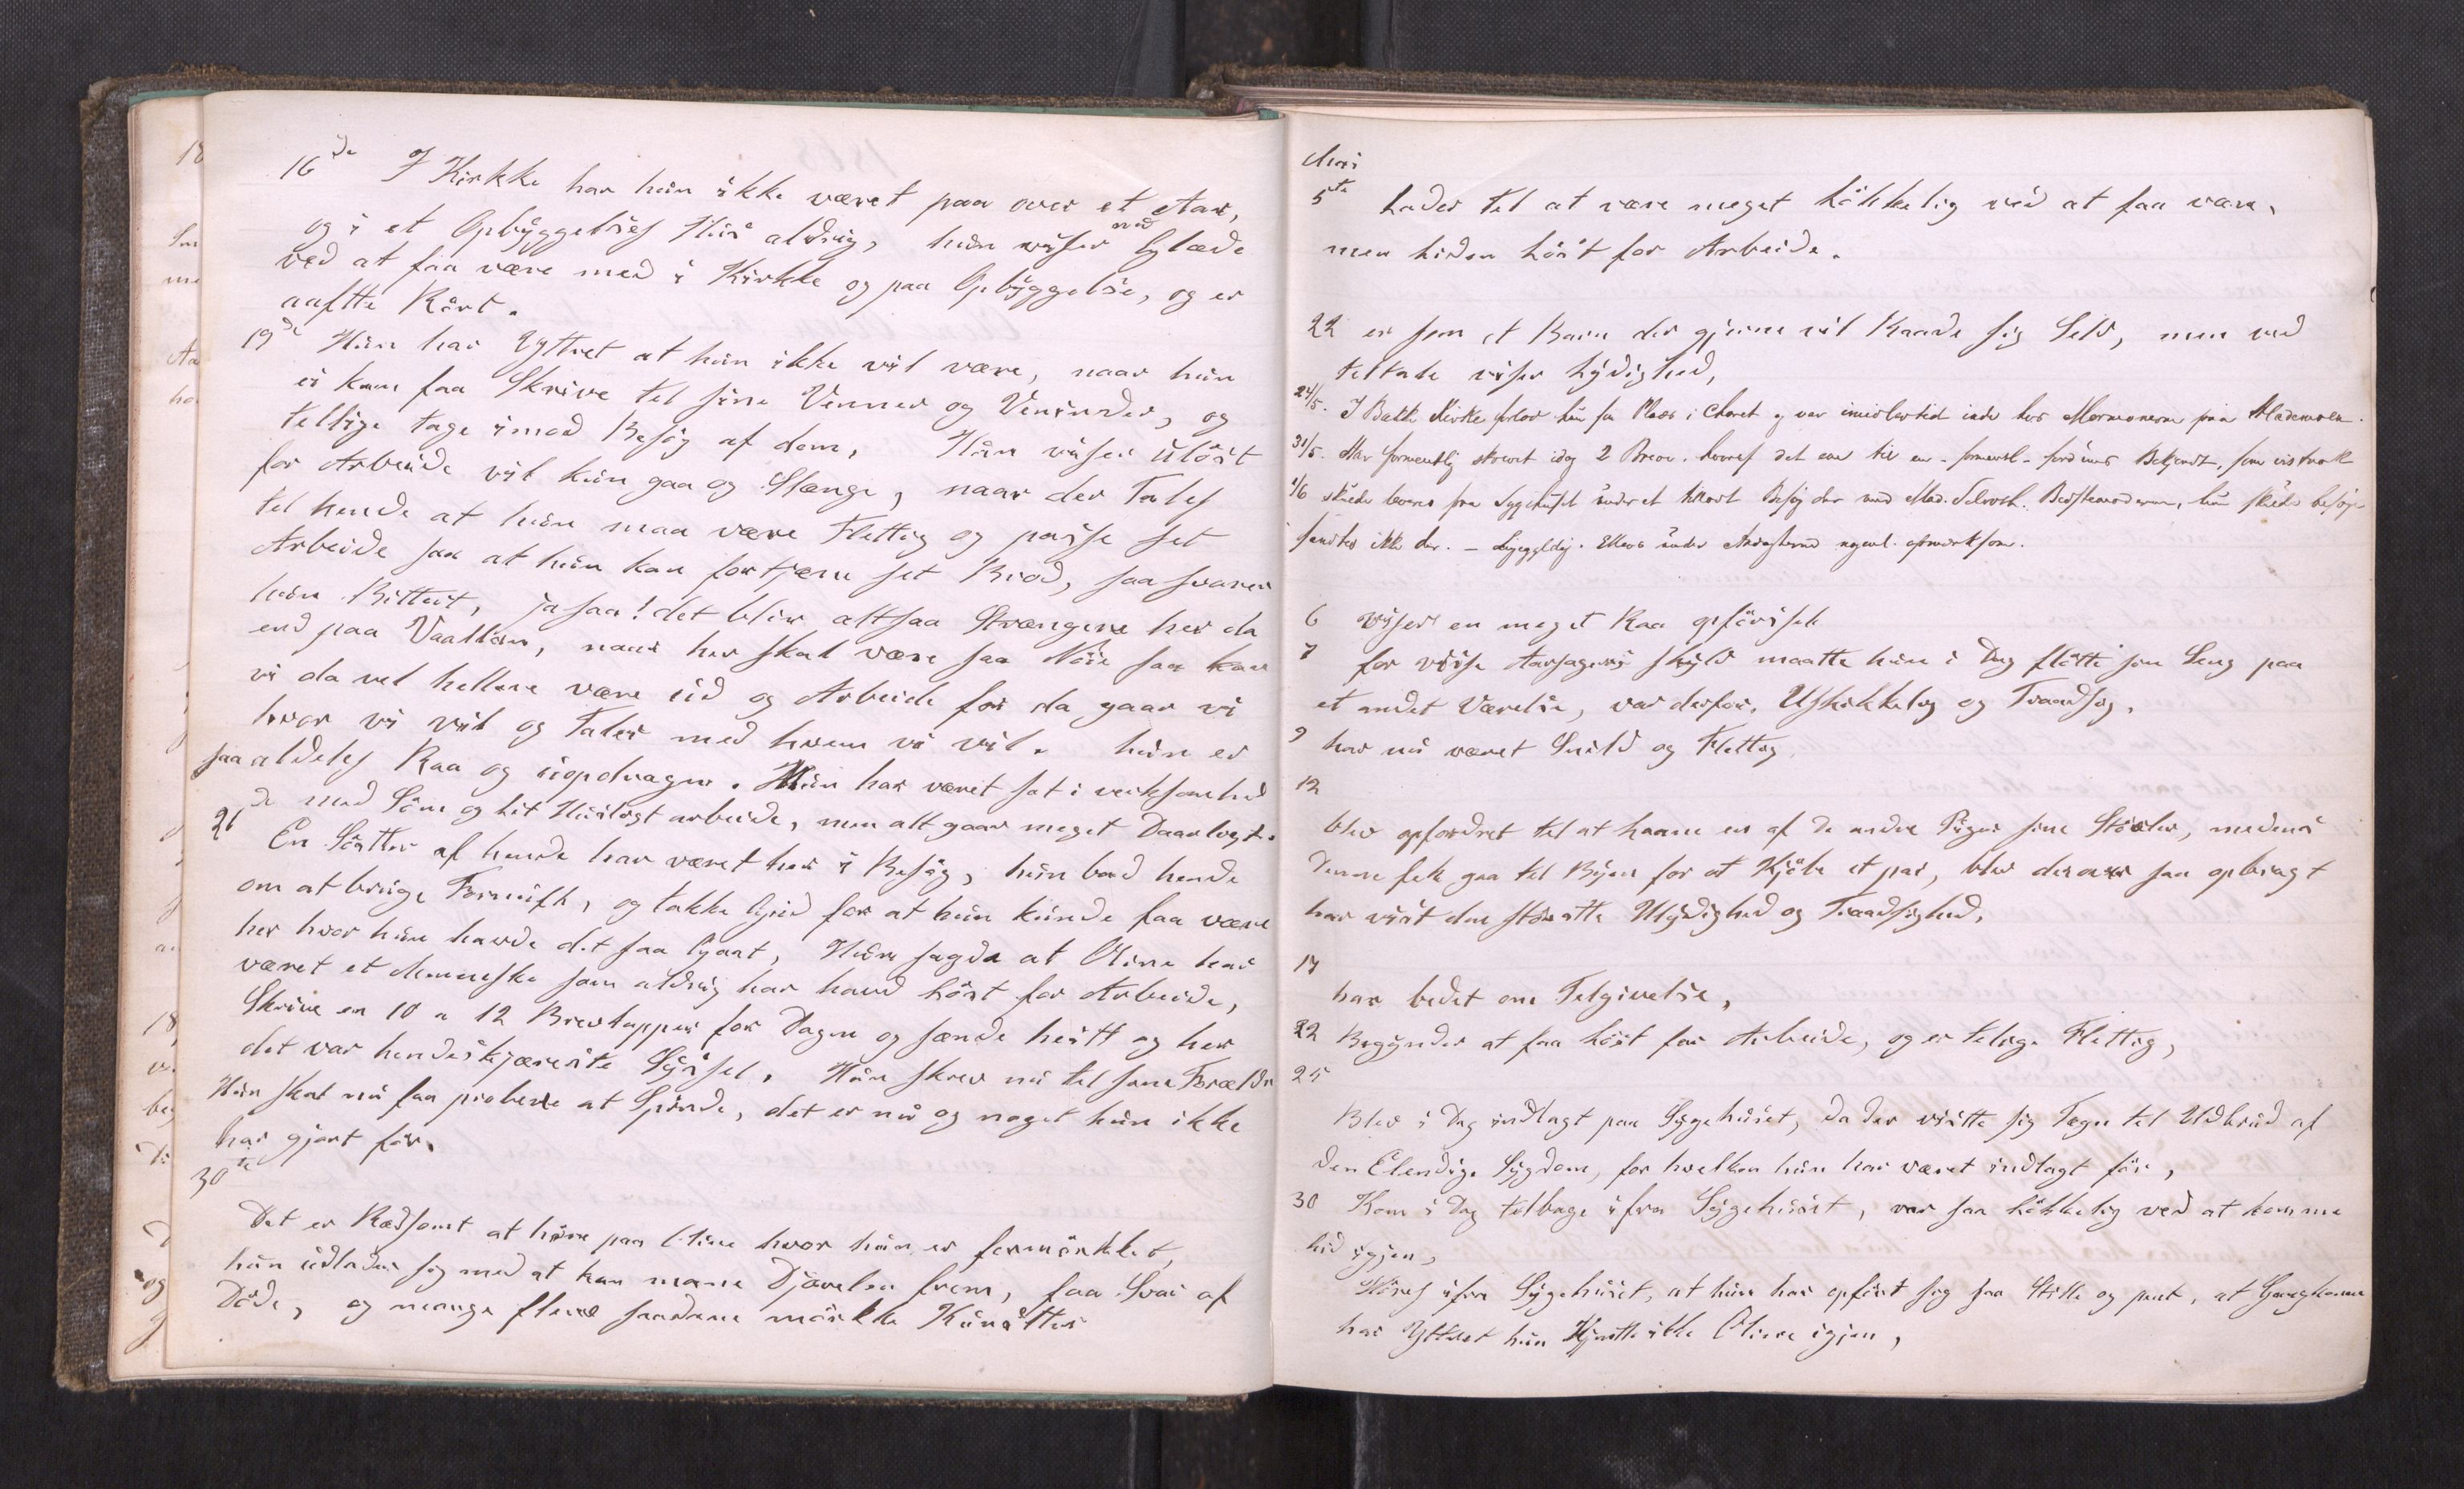 16de I Kirkke har hun ikke været paa over et Aar,
og i et Opbyggelses Hus aldrig, hun viser nu Glæde
ved at faa være med i Kirkke og paa Opbyggelse, og er
19de Hun har Yttret at hun ikke vil være, naar hun
ei kan faa Skrive tel sine Venner og Veninder, og
tellige tage imod Besøg af dem, Hun viser ulöst
for Arbeide vil kun gaa og Slænge, naar der Tales
tel hende at hun maa være Flettig og passe set
Arbeide saa at hun kan fortjene set Brod, saa svarer
hun Bittert, ja saa! det blir altsaa Strængere her da
end paa Vaallan, naar her skal være saa Nöie saa kan
vi da vel hellere være ud og Arbeide for da gaar vi
hvor vi vil og Taler med hvem vi vil. hun er
saa aldeles Raa og uopdragen. Hun har været sat i verksomhed
med Söm og let Huusligt arbeide, men alt gaar meget Daarligt.
26de En Söster af hende har været her i Besög, hun bad hende
om at bruge Fornuft, og takke Gud for at hun kunde faa være
her hvor hun havde det saa Gaat, Hun sagde at Oline har
været et Menneske som aldrig har havd Löst for Arbeide,
Skrive en 10 a 12 Brevlapper for Dagen og sænde heitt og her
det var hendes kjæreste Syssel. Hun skrev nu tel sine Foreldre
Hun skal nu faa probere at Spinde, det er nu og noget hun ikke
har gjort för.
30te
Det er Rædsomt at höre paa Oline hvor hun er formörkket,
hun udlader sig med at kan mane Djævelen frem, faa Svar af
Döde, og mange flere saadane mörkke Kunster
Mai
5te Lader tel at være meget Lökkelig ved at faa være,
men liden Löst for Arbeide.
22 er som et Barn der gjerne vil Raade sig Selv, men ved
teltale viser Lydighed,
24/5. I Bakke Kirke forlod hun sin Plads i Choret og var imidlertid inde hos Mormonerne paa
31/5. Har formentlig skrevet idag 2 Breve. hvoraf det ene til en
1/6 skulde levere fra Sygehuset under et Besög der med Mad. Bestemoderen, hun skulde besöge
fandtes ikke der. – Ligegyldig. Ellers under Andagterne opmerksom.
6 viser en meget Raa opförisel
7 for visse Aarsagers skyld maatte hun i Dag flötte sin Seng paa
et andet Værelse, var derfor, Uskikkelig og Traadsig.
9 har nu været Snild og Flettig
12
blev opfordret tel at laane en af de andre Piger sine Stövler, medens
denne fek gaa tel Byen for at Kjöbe et par, blev derover saa opbragt
har vist den störste Ulydighed og Traadsighed,
17
har bedet om Telgivelse,
22 Begynder at faa Löst for Arbeide, og er telige Flettig,
25
Blev i Dag indlagt paa Sygehuset, da der visste sig Tegn tel Udbrud af
den Elendige Sygdom, for hvelken hun har været indlagt för,
30 Kom i Dag telbage ifra Sygehuset, var saa lökkelig ved at komme
hid igjen,
Höres ifra Sygehuset, at hun har opfört sig saa Stille og pent, at Gangkonen
har Yttret hun Kjendte ikke Oline igjen,